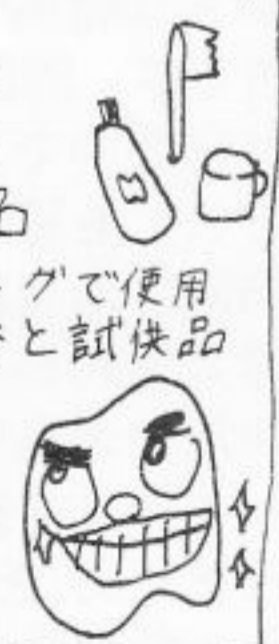 グで使用
と試供品